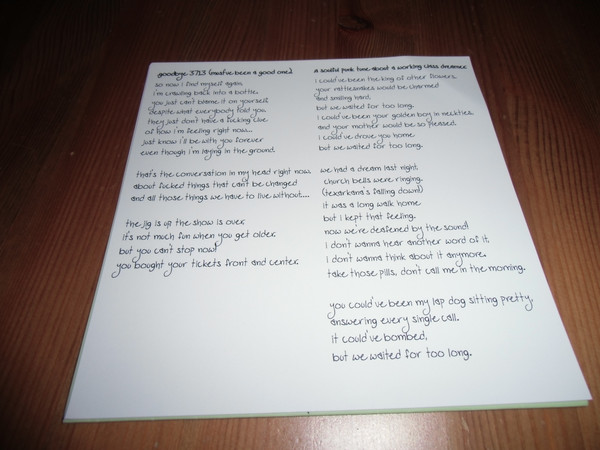 goodbye 3713 (must've been a good one)
so now i find myself again,
i'm crawling back into a bottle.
you just can't blame it on yourself,
despite what everybody told you.
they just don't have a fucking clue
of how i'm feeling right now...
just know i'll be with you forever
even though i'm laying in the ground.
that's the conversation in my head right now
about fucked things that can't be changed
and all those things we have to live without....
the jig is up the show is over,
it's not much fun when you get older,
but you can't stop now!
you bought your tickets front and center.
A soulful punk tune about a working class dreamer
i could've been the king of other flowers,
your rattlesnakes would be charmed
and smiling hard,
but we waited for too long.
i could've been your golden boy in neckties,
and your mother would be so pleased.
i could've drove you home
but we waited for too long.
we had a dream last night,
church bells were ringing.
(texarkana's falling down!)
it was a long walk home
but i kept that feeling.
now we're deafened by the sound!
i don't wanna hear another word of it,
i don't wanna think about it anymore.
take those pills, don't call me in the morning.
you could've been my lap dog sitting pretty,
answering every single call.
it could've bombed,
but we waited for too long.